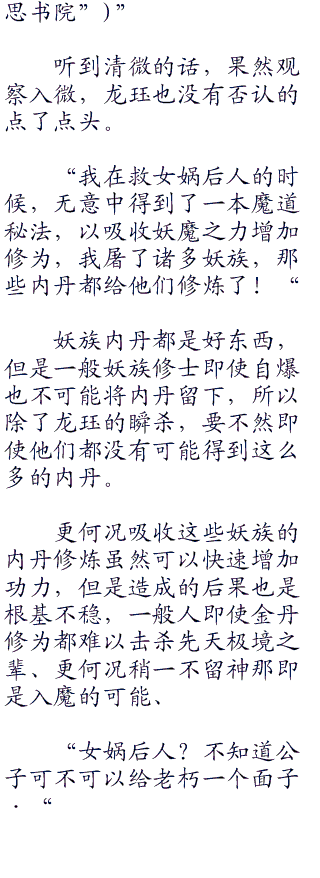 思书院”)”
听到清微的话，果然观
察入微，龙珏也没有否认的
点了点头。
“我在救女娲后人的时
候，无意中得到了一本魔道
秘法，以吸收妖魔之力增加
修为，我屠了诸多妖族，那
些内丹都给他们修炼了！“
妖族内丹都是好东西，
但是一般妖族修士即使自爆
也不可能将内丹留下，所以
除了龙珏的瞬杀，要不然即
使他们都没有可能得到这么
多的内丹。
更何况吸收这些妖族的
内丹修炼虽然可以快速增加
功力，但是造成的后果也是
根基不稳，一般人即使金丹
修为都难以击杀先天极境之
辈、更何况稍一不留神那即
是入魔的可能、
“女娲后人？不知道公
子可不可以给老朽一个面子
．“